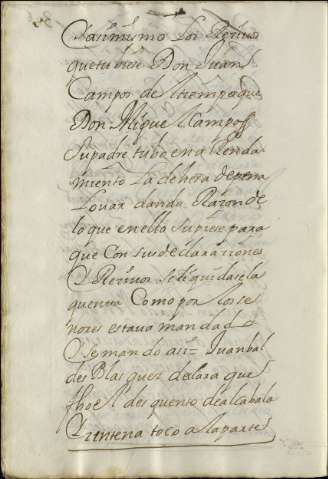 Casimismo los Rectuos
que tubiese Don Juan
Campos del tiempo que
Don Miguel Campos
su padre tubo en arrenda
miento la dehesa de pena
louar dando Razon de
lo que en ello supiere para
que Con sus declaraciones
y Recivos se liquidase la
quenta Como por los se
nores estava mandado
y se mando asi= Juan bal
des Blasquez declara que
fho el desquento de alcabala
y sentena toco a la parte